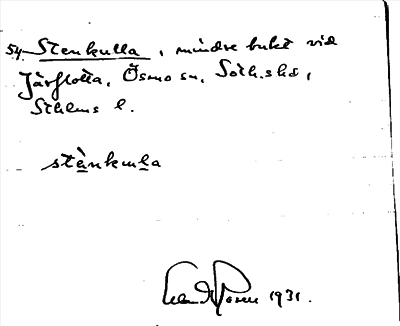 54. Stenkulla, mindre bukt vid
Järflotta, Ösmo sn, Söt.h.shd,
Sthlms l.
stènkula
1931.